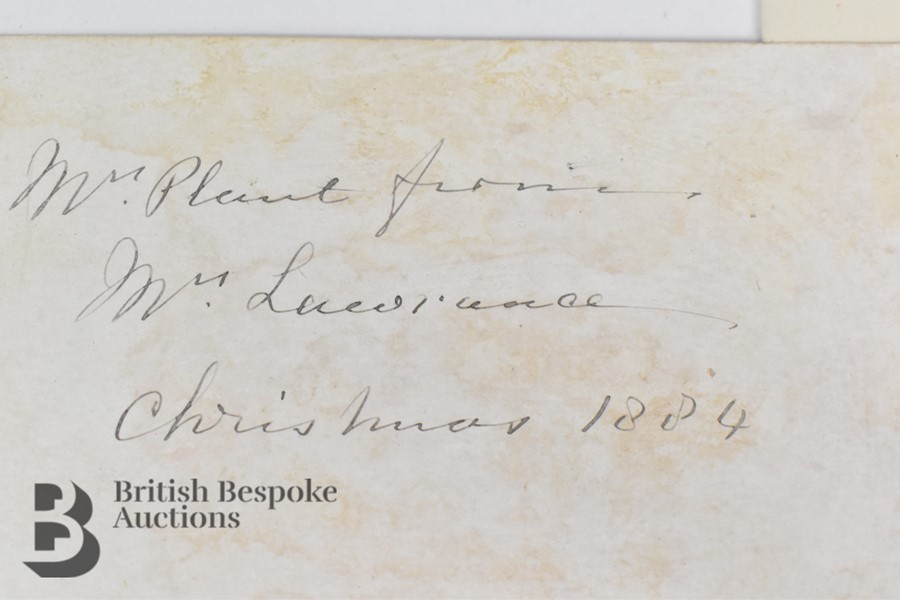 Mrs. Plant from
Mrs. Lawrance
Christmas 1884
British Bespoke
Auctions